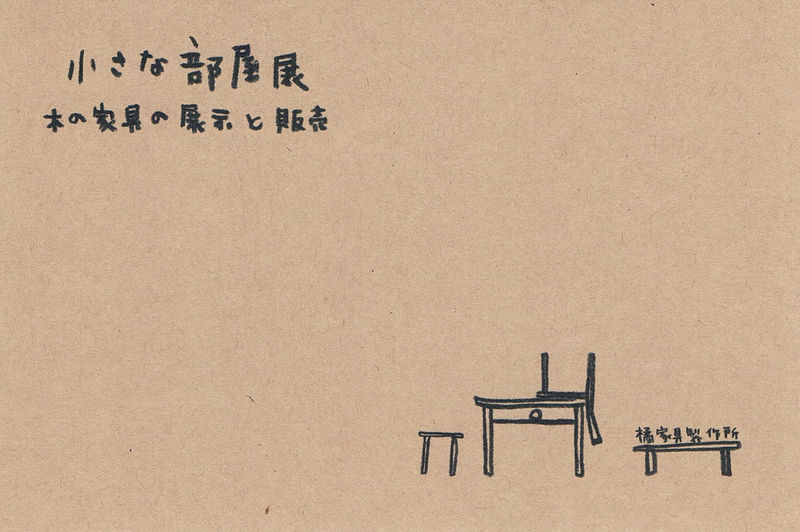 小さな部屋展
木の家具の展示と販売
橘家具製作所